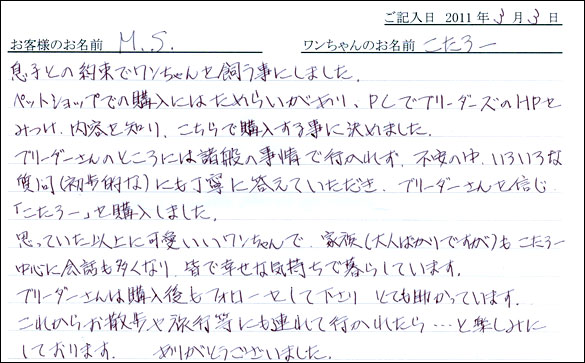 ご記入日 2011年 3月 3日
お客様のお名前 M.S. ワンちゃんのお名前 こたろー
息子との約束でワンちゃんを飼う事にしました。
ペットショップでの購入にはためらいがあり、PCでブリーダーズのHPを
みつけ、内容を知り、こちらで購入する事に決めました。
ブリーダーさんのところには諸般の事情で行かれず、不安の中、いろいろな
質問(初歩的な)にも丁寧に答えていただき、ブリーダーさんを信じ
「こたろー」を購入しました。
思っていた以上に可愛いいワンちゃんで、家族(大人ばかりですが)も こたろー
中心に会話も多くなり、皆で幸せな気持ちで暮らしています。
ブリーダーさんは購入後もフォローをして下さり とても助かっています。
これからお散歩や旅行等にも連れて行かれたら…と楽しみに
しております。 ありがとうございました。